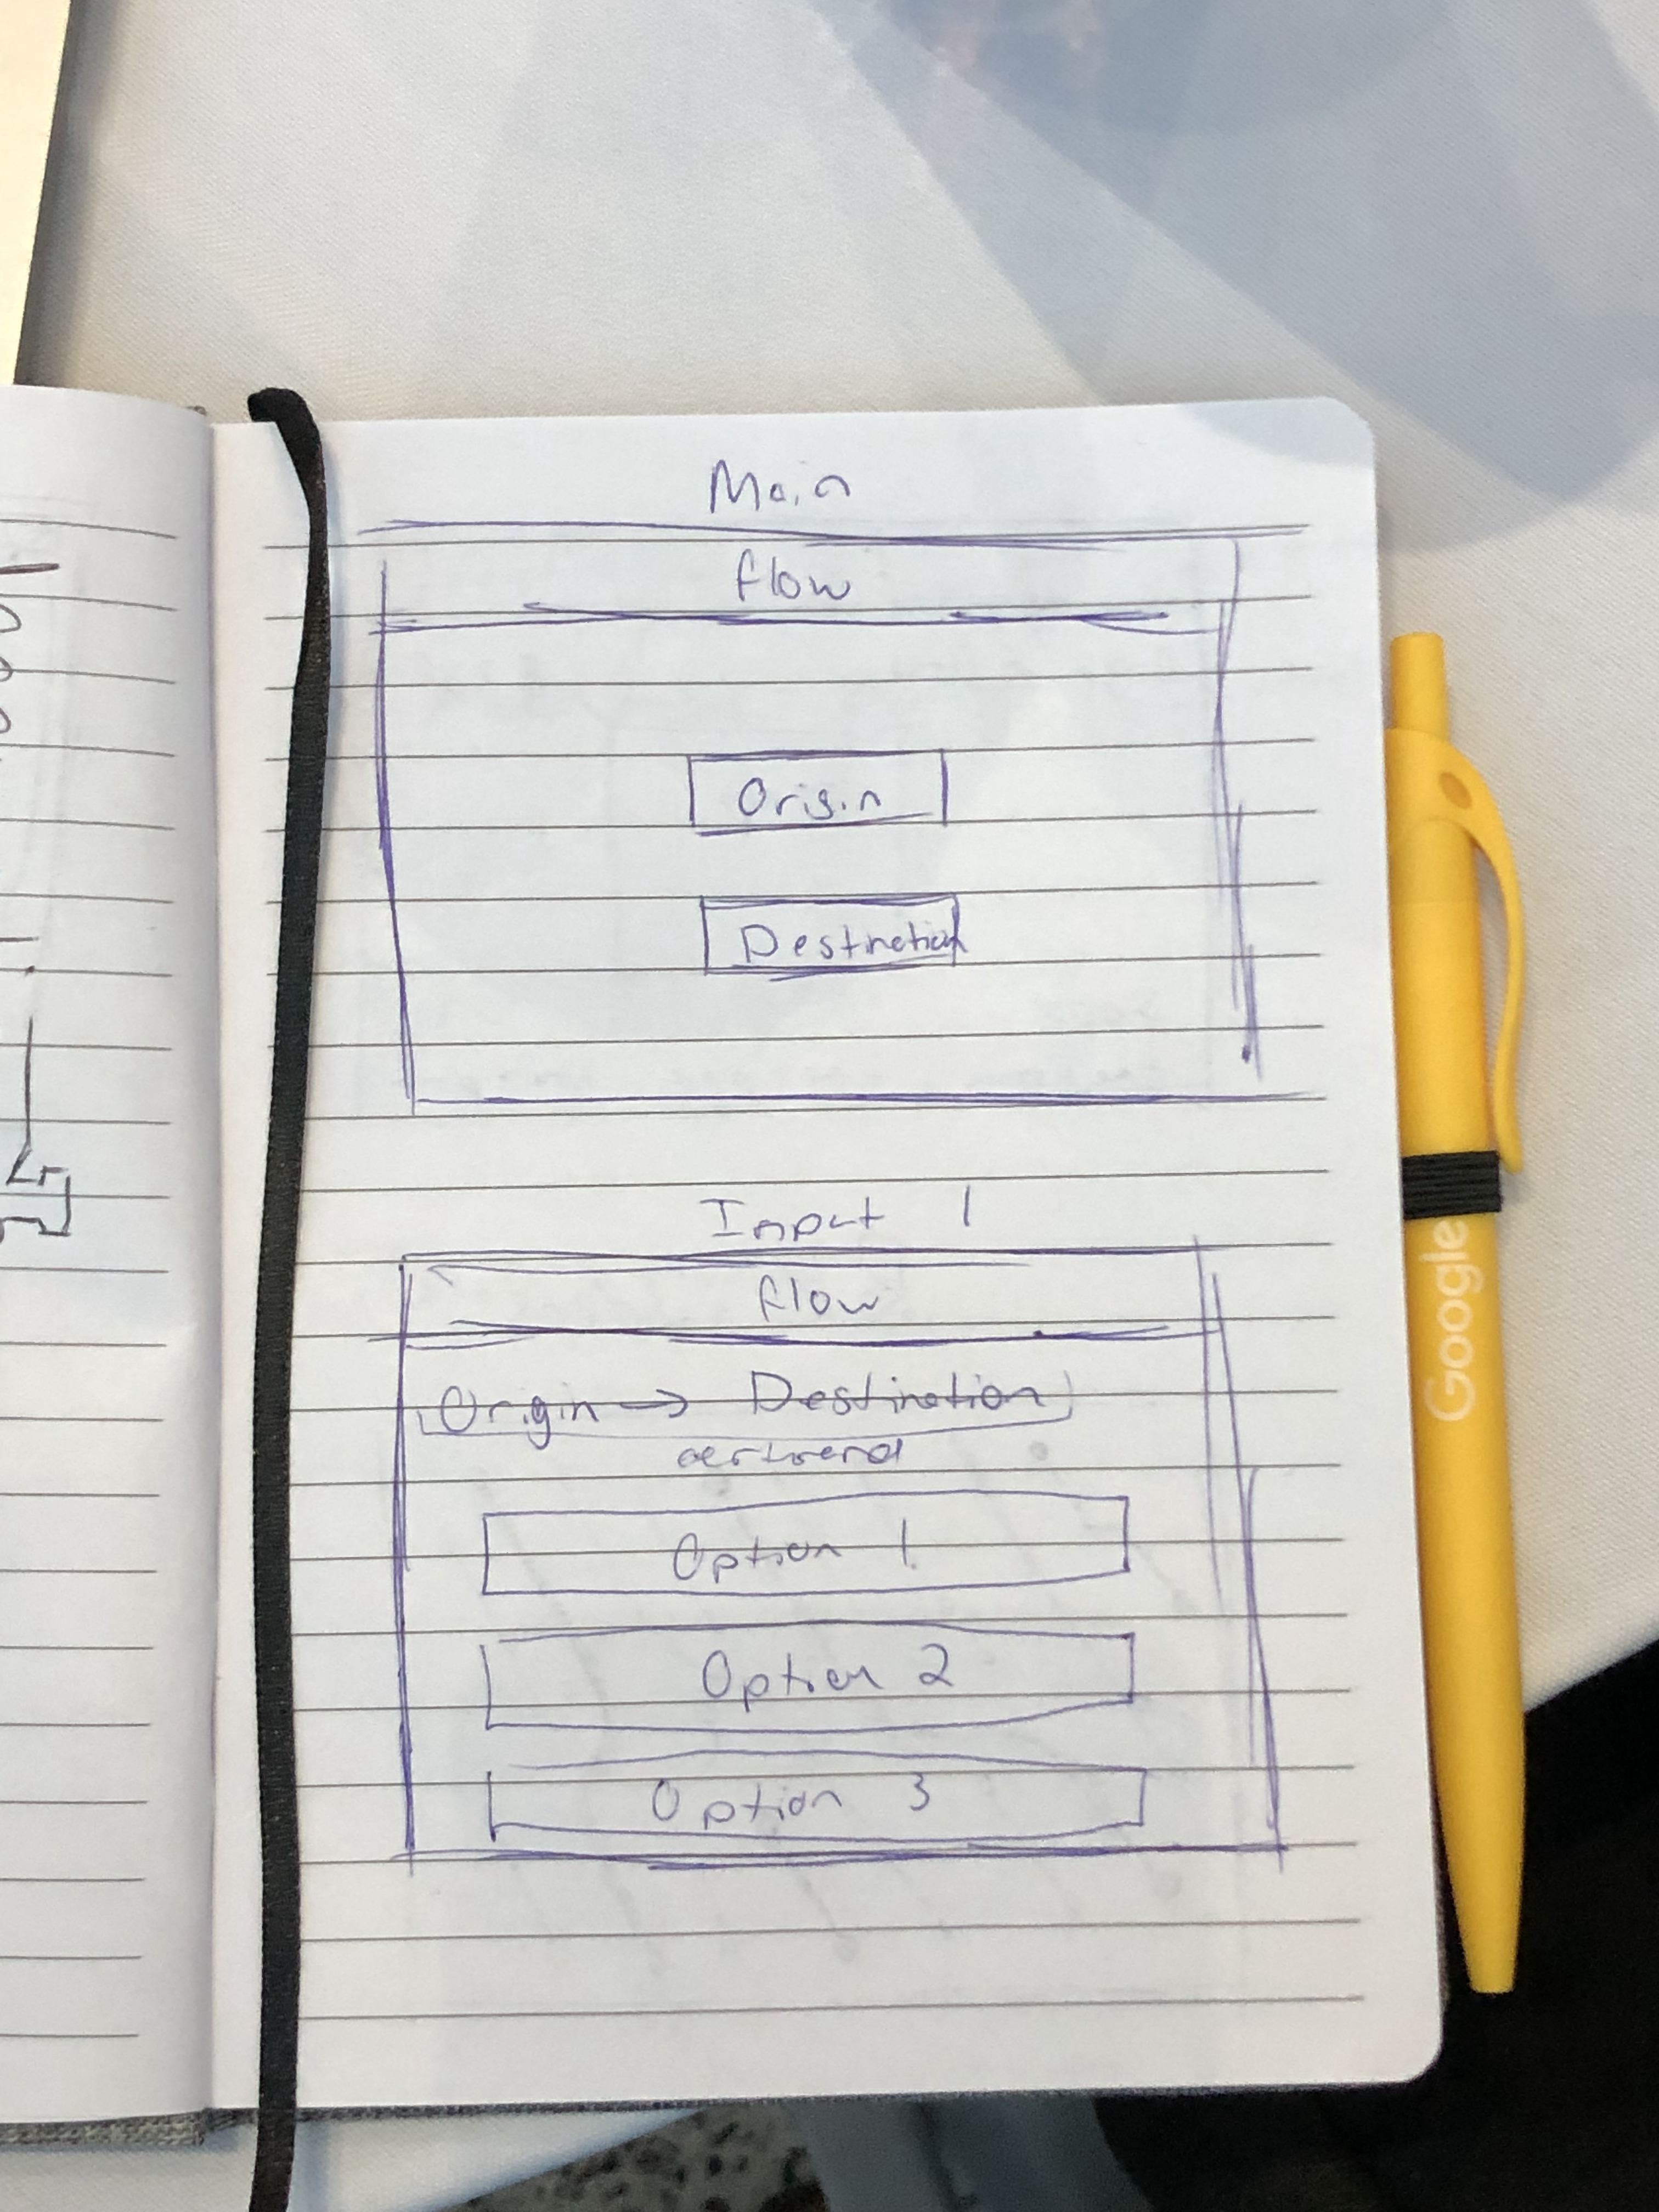 Main
flow
Origin
Destination
Input 1
flow
Origin → Destination
Option 1
Option 2
Option 3
Google